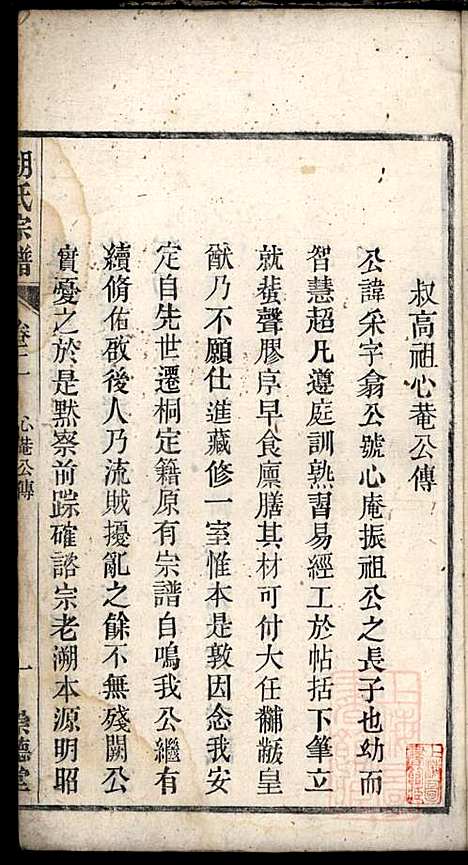 叔高祖心菴公傳
公諱采字翕公號心庵振祖公之長子也幼而
智慧超凡遵庭訓熟習易經工於帖括下筆立
就蜚聲膠序早食廩膳其材可付大任黼黻皇
猷乃不願仕進藏修一室惟本是敦因念我安
定自先世遷桐定籍原有宗譜自鳴我公繼有
續脩佑啟後人乃流賊擾亂之餘不無殘闕公
實憂之於是默察前踪確諮宗老溯本源明昭
胡氏宗譜 卷二 心菴公傳 一